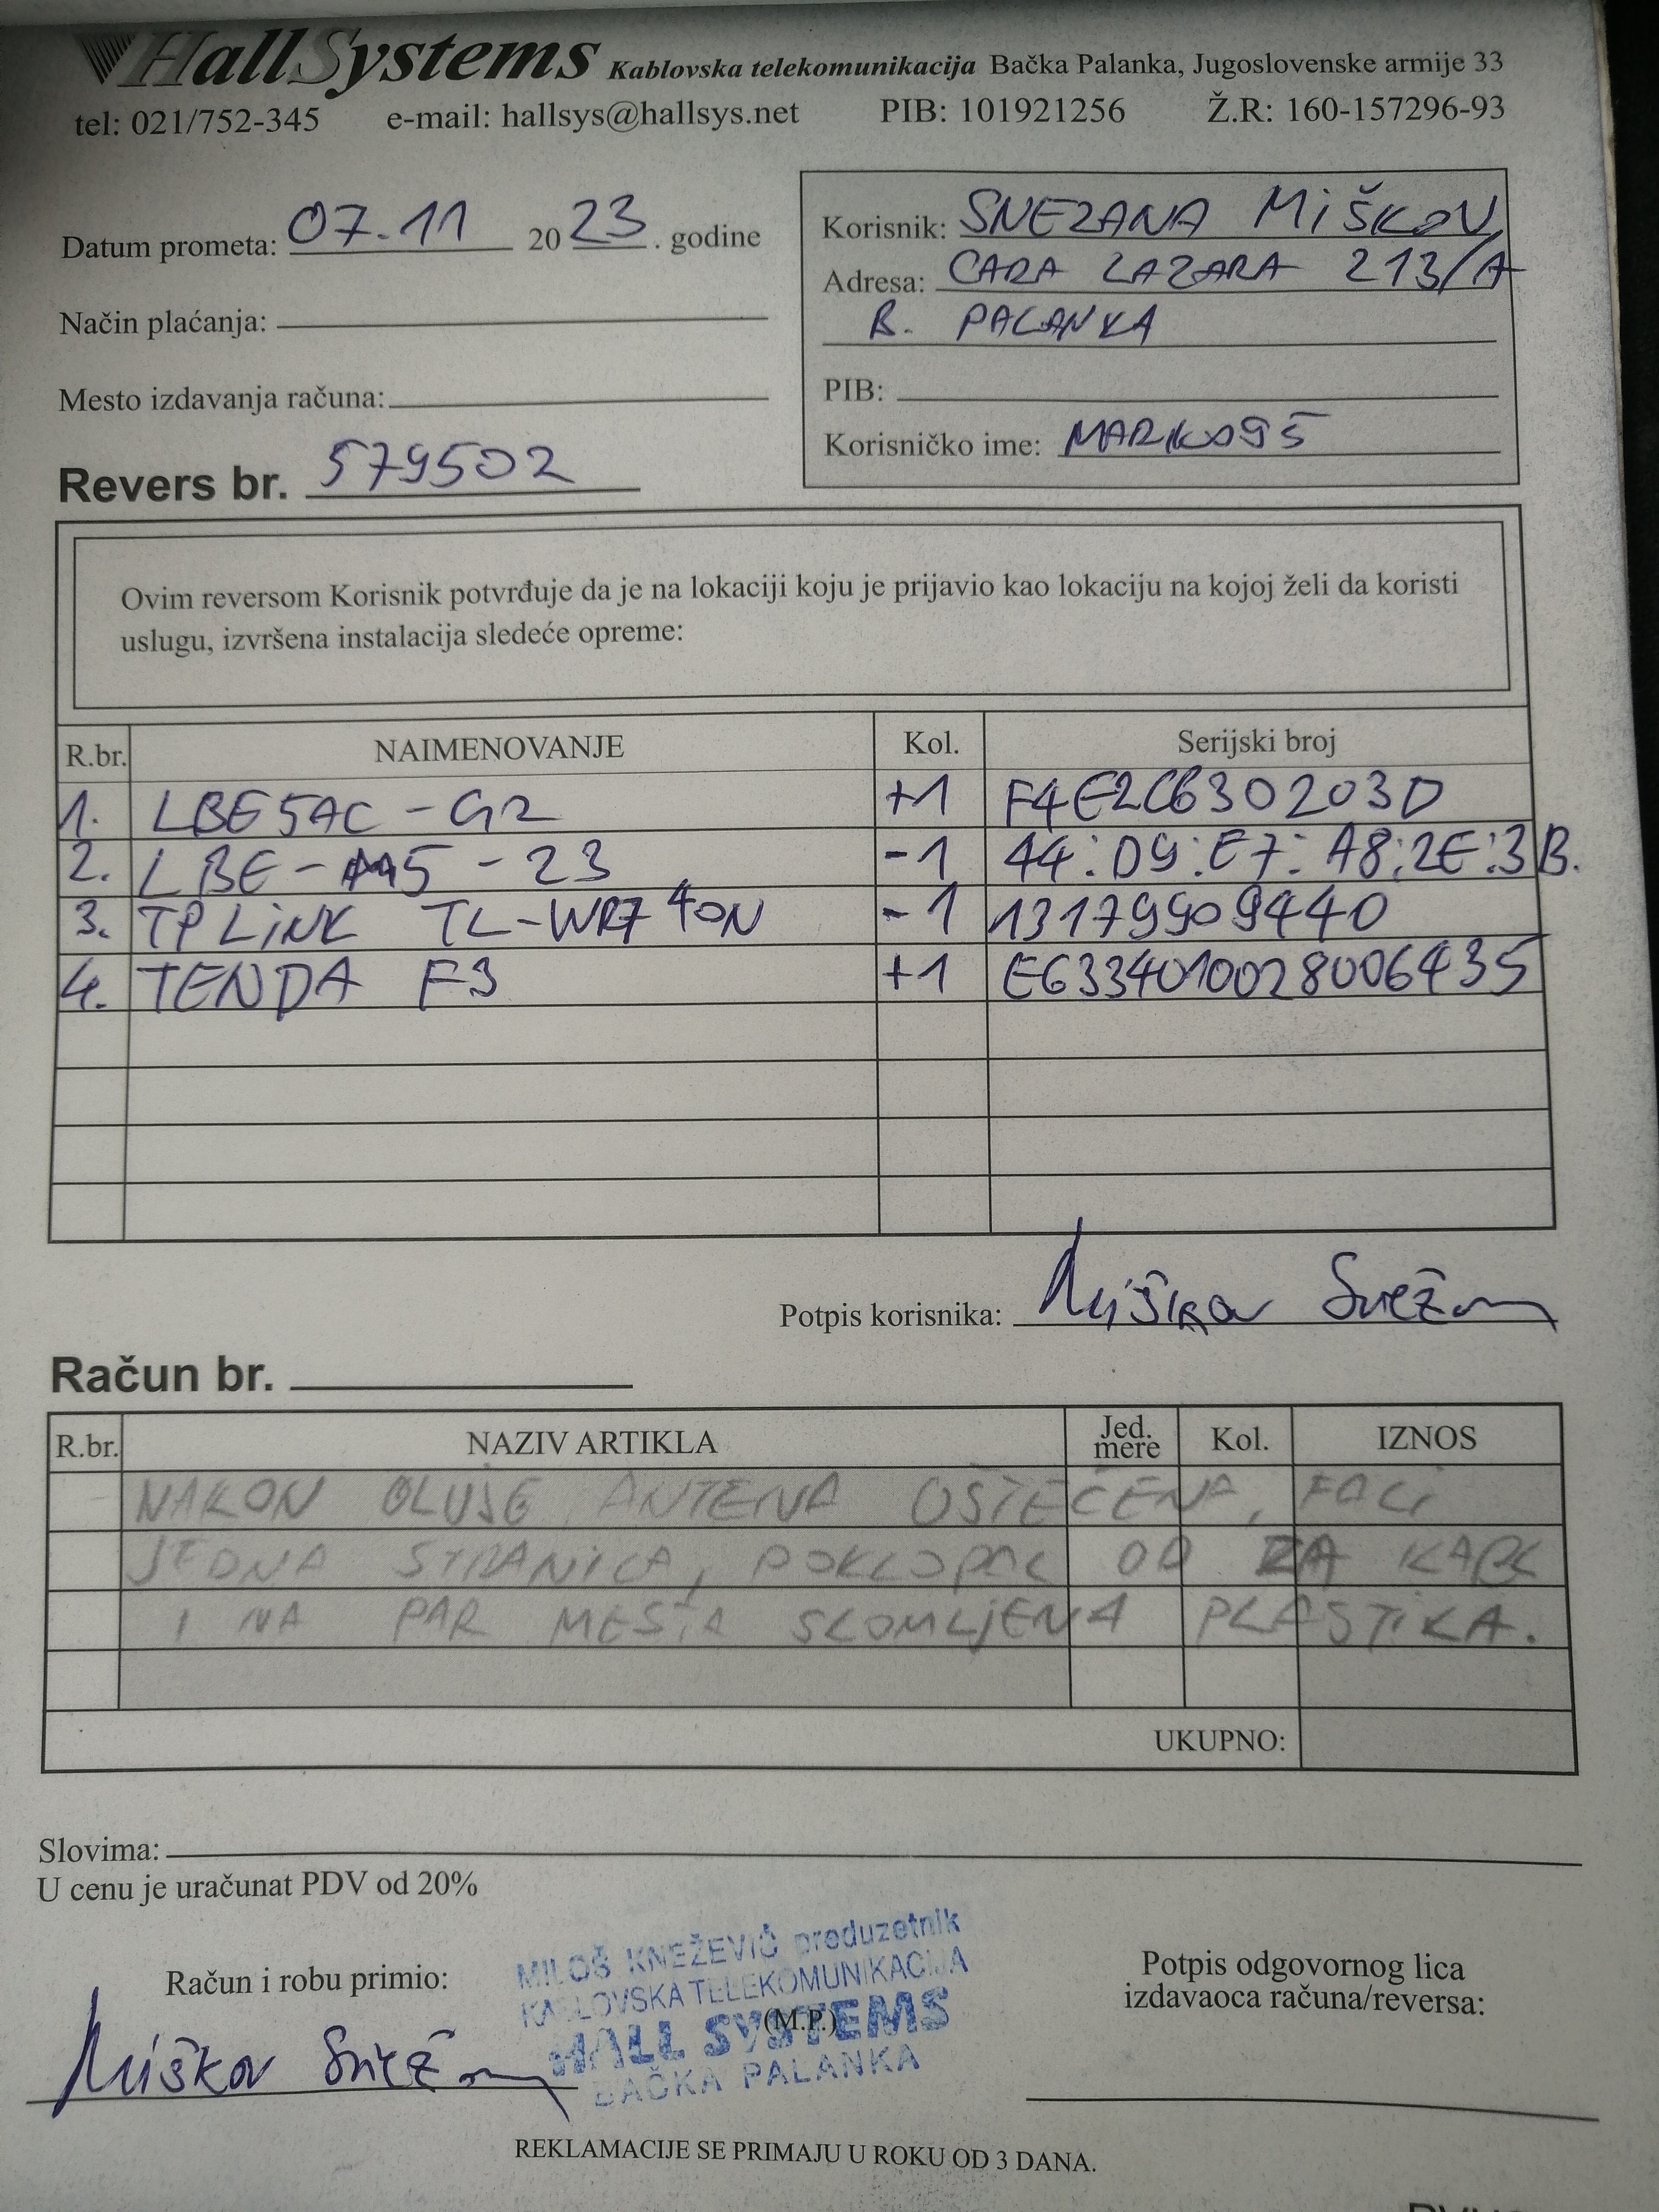 HallSystems Kablovska telekomunikacija Bačka Palanka, Jugoslovenske armije 33
tel: 021/752-345 e-mail: hallsys@hallsys.net PIB: 101921256 Ž.R: 160-157296-93
Datum prometa: 07.11 2023. godine
Način plaćanja:
Mesto izdavanja računa:
Revers br. 579502
Korisnik: SNEZANA MiŠKOV
Adresa: CARA LAZARA 213/A
B. PALANKA
PIB:
Korisničko ime: MARKO95
Ovim reversom Korisnik potvrđuje da je na lokaciji koju je prijavio kao lokaciju na kojoj želi da koristi
uslugu, izvršena instalacija sledeće opreme:
R.br. NAIMENOVANJE Kol. Serijski broj
1. LBE5AC-G2 +1 F4E2C630203D
2. LBE-M5-23 -1 44:D9:E7:A8:2E:3B.
3. TP LiNK TL-WR740N -1 13179909440
4. TENDA F3 +1 E6334010028006435
Potpis korisnika: Miškov Snežana
Račun br.
R.br. NAZIV ARTIKLA Jed. mere Kol. IZNOS
NAKON OLUJE ANTENA OŠTEĆENA, FALI
JEDNA STRANICA, POKLOPAC OD ZA KABL
I NA PAR MESTA SLOMLJENA PLASTIKA.
UKUPNO:
Slovima:
U cenu je uračunat PDV od 20%
Račun i robu primio:
Miškov Snežana
MILOŠ KNEŽEVIĆ preduzetnik
KABLOVSKA TELEKOMUNIKACIJA
(M.P.)
HALL SYSTEMS
BAČKA PALANKA
Potpis odgovornog lica
izdavaoca računa/reversa:
REKLAMACIJE SE PRIMAJU U ROKU OD 3 DANA.